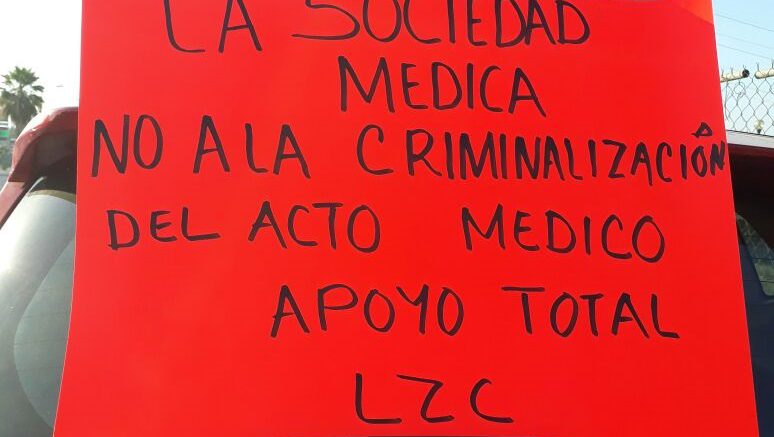 LA SOCIEDAD
MEDICA
NO A LA CRIMINALIZACIÓN
DEL ACTO MEDICO
APOYO TOTAL
LZC